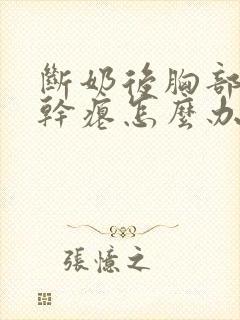 斷奶後胸部
幹癟怎麼办
張憶之